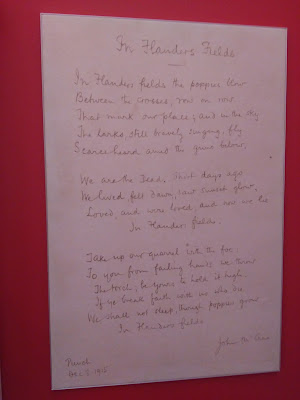 In Flanders Fields
In Flanders fields the poppies blow
Between the crosses, row on row,
That mark our place; and in the sky
The larks, still bravely singing, fly
Scarce heard amid the guns below.
We are the Dead. Short days ago
We lived, felt dawn, saw sunset glow,
Loved, and were loved, and now we lie
In Flanders fields.
Take up our quarrel with the foe:
To you from failing hands we throw
The torch; be yours to hold it high.
If ye break faith with us who die
We shall not sleep, though poppies grow
In Flanders fields
John McCrae
Punch
Dec 8 1915